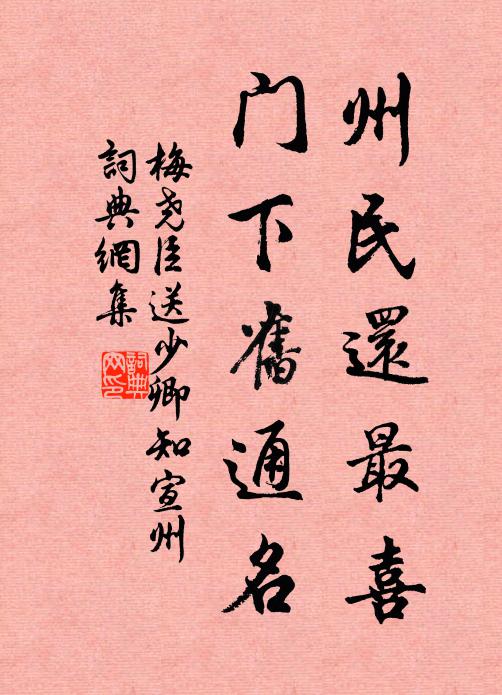 州民還最喜
门下舊通名
梅尧臣送少卿知宣州
詞典網集
詞典网印